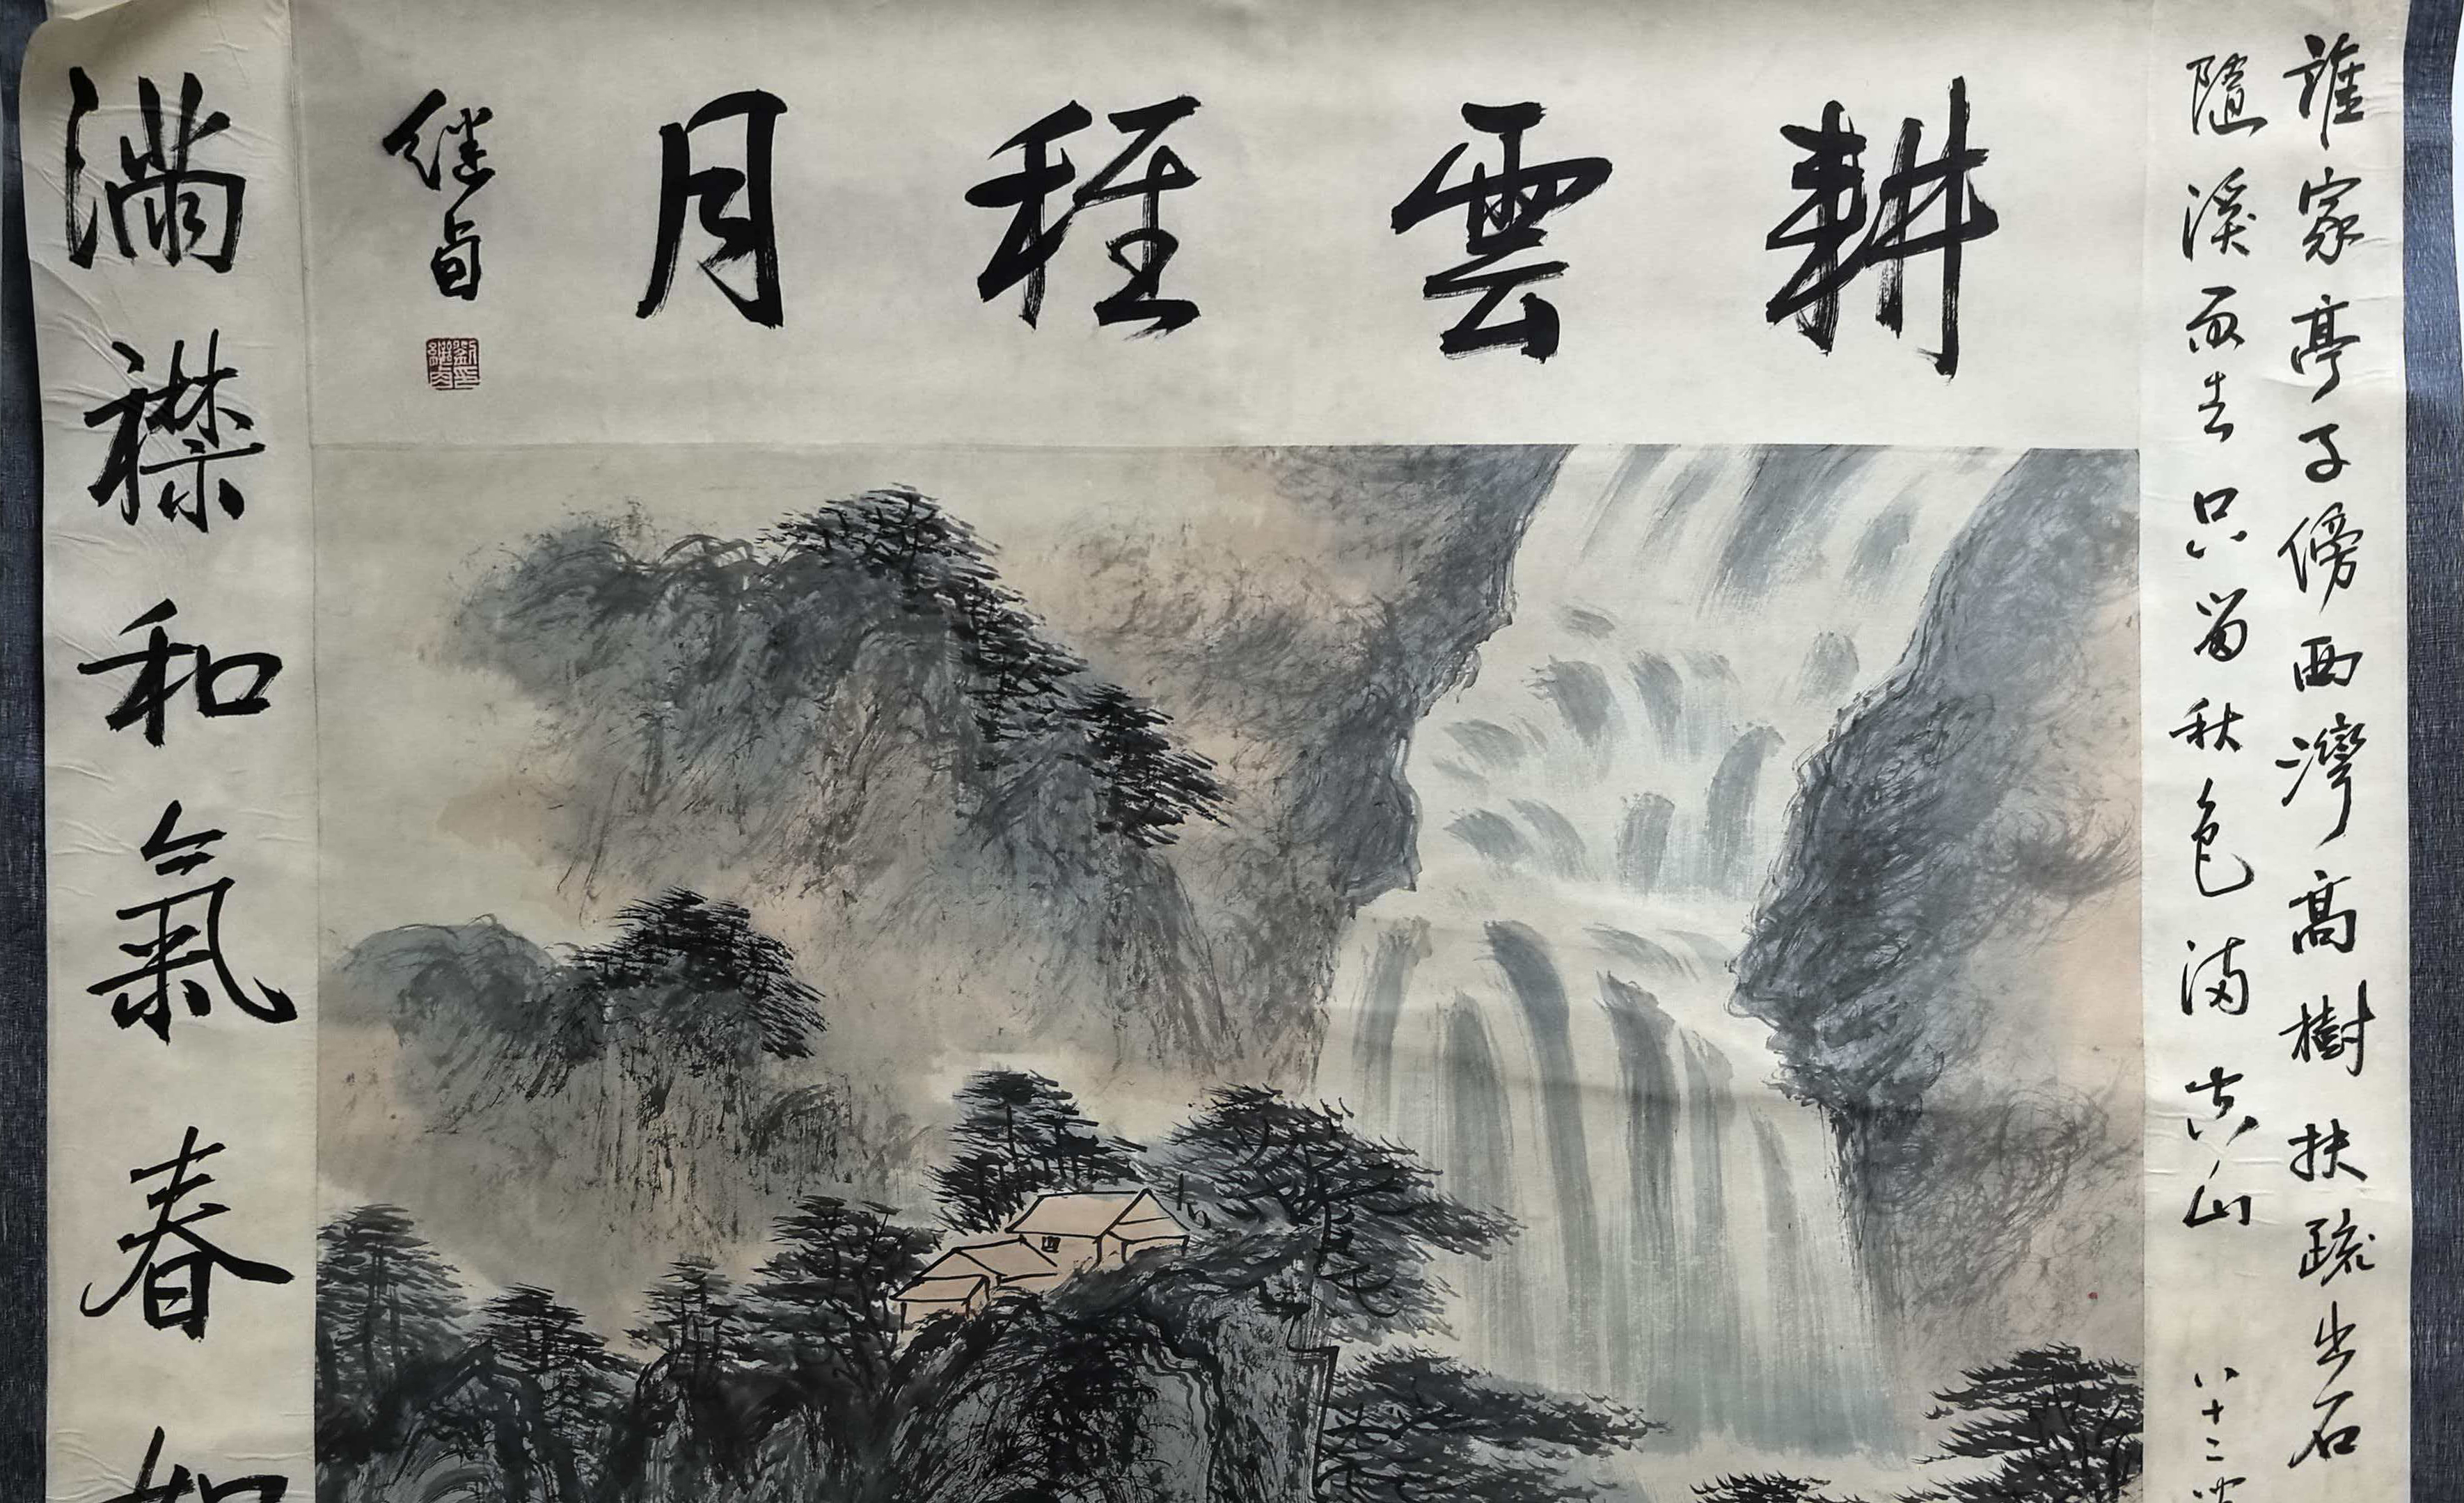 耕雲種月
继卣
劉印繼卣
誰家亭子傍西灣高樹扶疏出石
隨溪雨去只留秋色滿空山 八十二
滿襟和氣春如